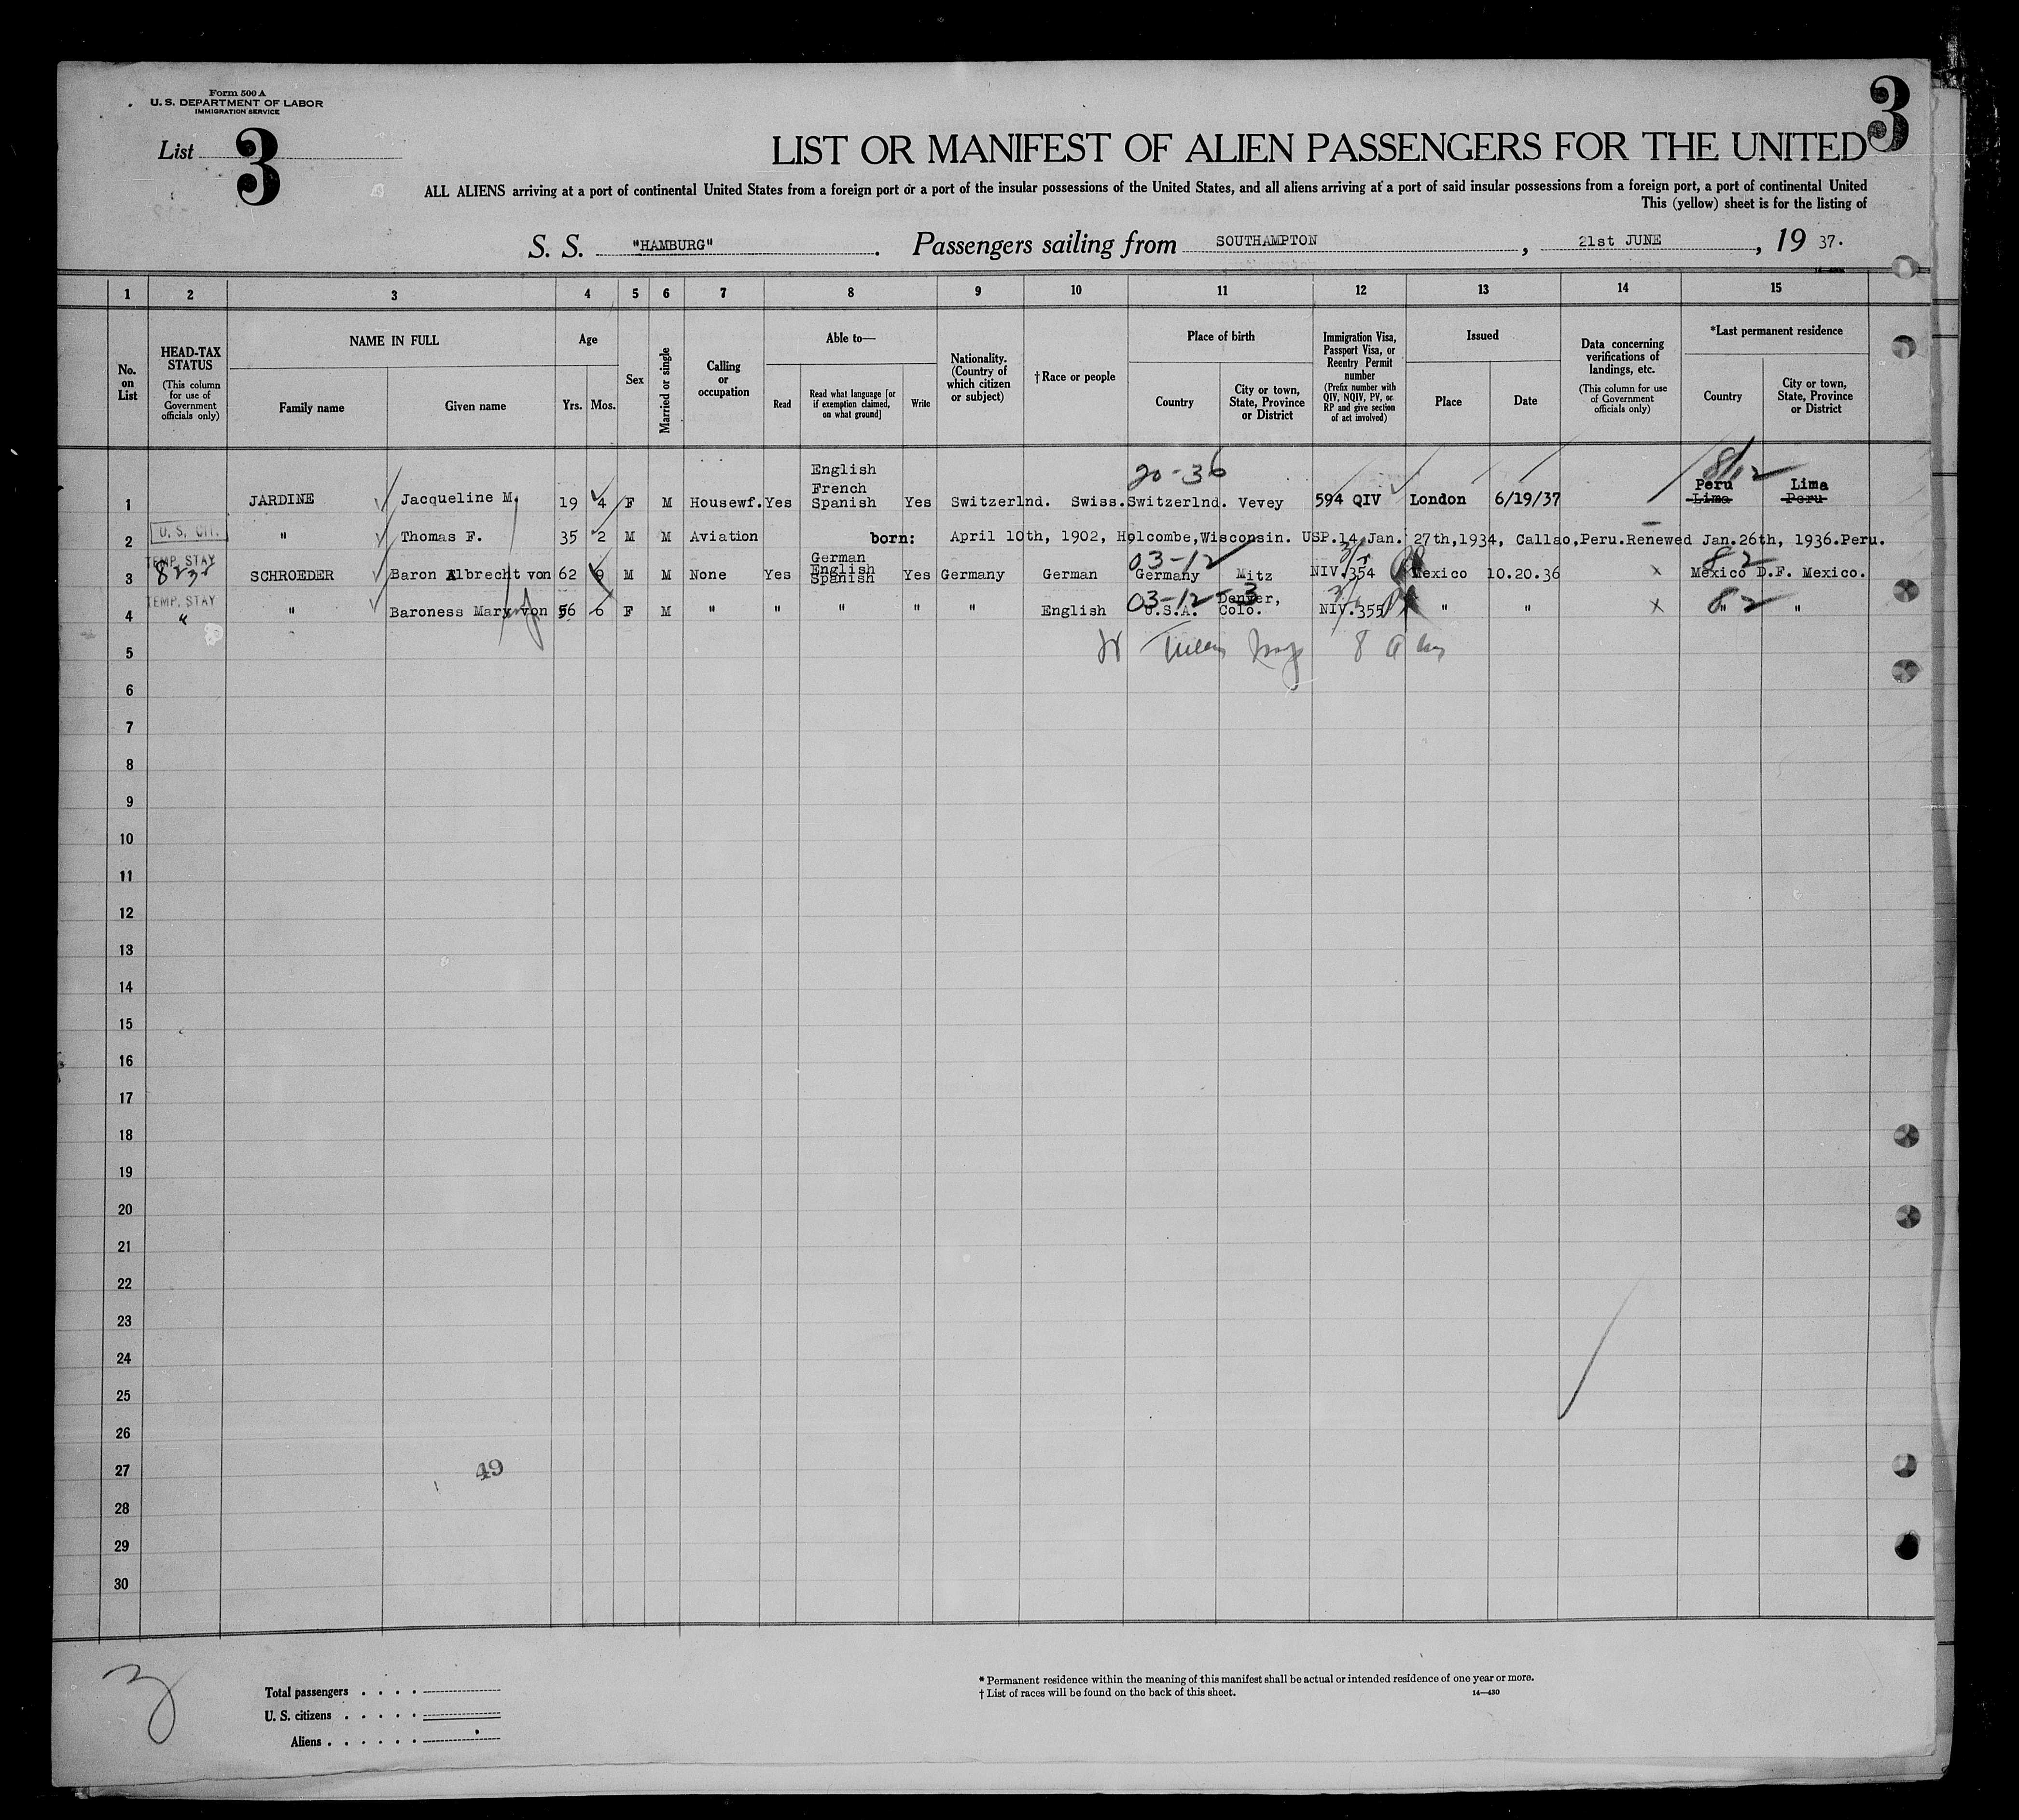 Form 500 A
U. S. DEPARTMENT OF LABOR
IMMIGRATION SERVICE
List 3
3
LIST OR MANIFEST OF ALIEN PASSENGERS FOR THE UNITED
ALL ALIENS arriving at a port of continental United States from a foreign port or a port of the insular possessions of the United States, and all aliens arriving at a port of said insular possessions from a foreign port, a port of continental United
This (yellow) sheet is for the listing of
S. S. "HAMBURG". Passengers sailing from SOUTHAMPTON, 21st JUNE, 19 37.
1 2 3 4 5 6 7 8 9 10 11 12 13 14 15
No. on List
HEAD-TAX STATUS
(This column for use of Government officials only)
NAME IN FULL
Family name
Given name
Age
Yrs.
Mos.
Sex
Married or single
Calling or occupation
Able to—
Read
Read what language [or if exemption claimed, on what ground]
Write
Nationality. (Country of which citizen or subject)
†Race or people
Place of birth
Country
City or town, State, Province or District
Immigration Visa, Passport Visa, or Reentry Permit number
(Prefix number with QIV, NQIV, PV, or RP and give section of act involved)
Issued
Place
Date
Data concerning verifications of landings, etc.
(This column for use of Government officials only)
*Last permanent residence
Country
City or town, State, Province or District
20-36 8/12
English
French Peru Lima
1 JARDINE Jacqueline M. 19 4 F M Housewf. Yes Spanish Yes Switzerlnd. Swiss. Switzerlnd. Vevey 594 QIV London 6/19/37 Lima Peru
2 U. S. CIT. " Thomas F. 35 2 M M Aviation born: April 10th, 1902, Holcombe,Wisconsin. USP.14 Jan. 27th,1934, Callao,Peru.Renewed Jan.26th, 1936.Peru.
TEMP. STAY German 03-12 82
English
3 SCHROEDER Baron Albrecht von 62 9 M M None Yes Spanish Yes Germany German Germany Mitz NIV.354 Mexico 10.20.36 x Mexico D.F. Mexico.
TEMP. STAY 03-12-3 Denver, 82
4 " " Baroness Mary von 56 6 F M " " " " " English U.S.A. Colo. NIV.355 " " x " "
5
6
7
8
9
10
11
12
13
14
15
16
17
18
19
20
21
22
23
24
25
26
27
49
28
29
30
3
Total passengers . . . .
U. S. citizens . . . . .
Aliens . . . . . .
* Permanent residence within the meaning of this manifest shall be actual or intended residence of one year or more.
† List of races will be found on the back of this sheet.
14—430